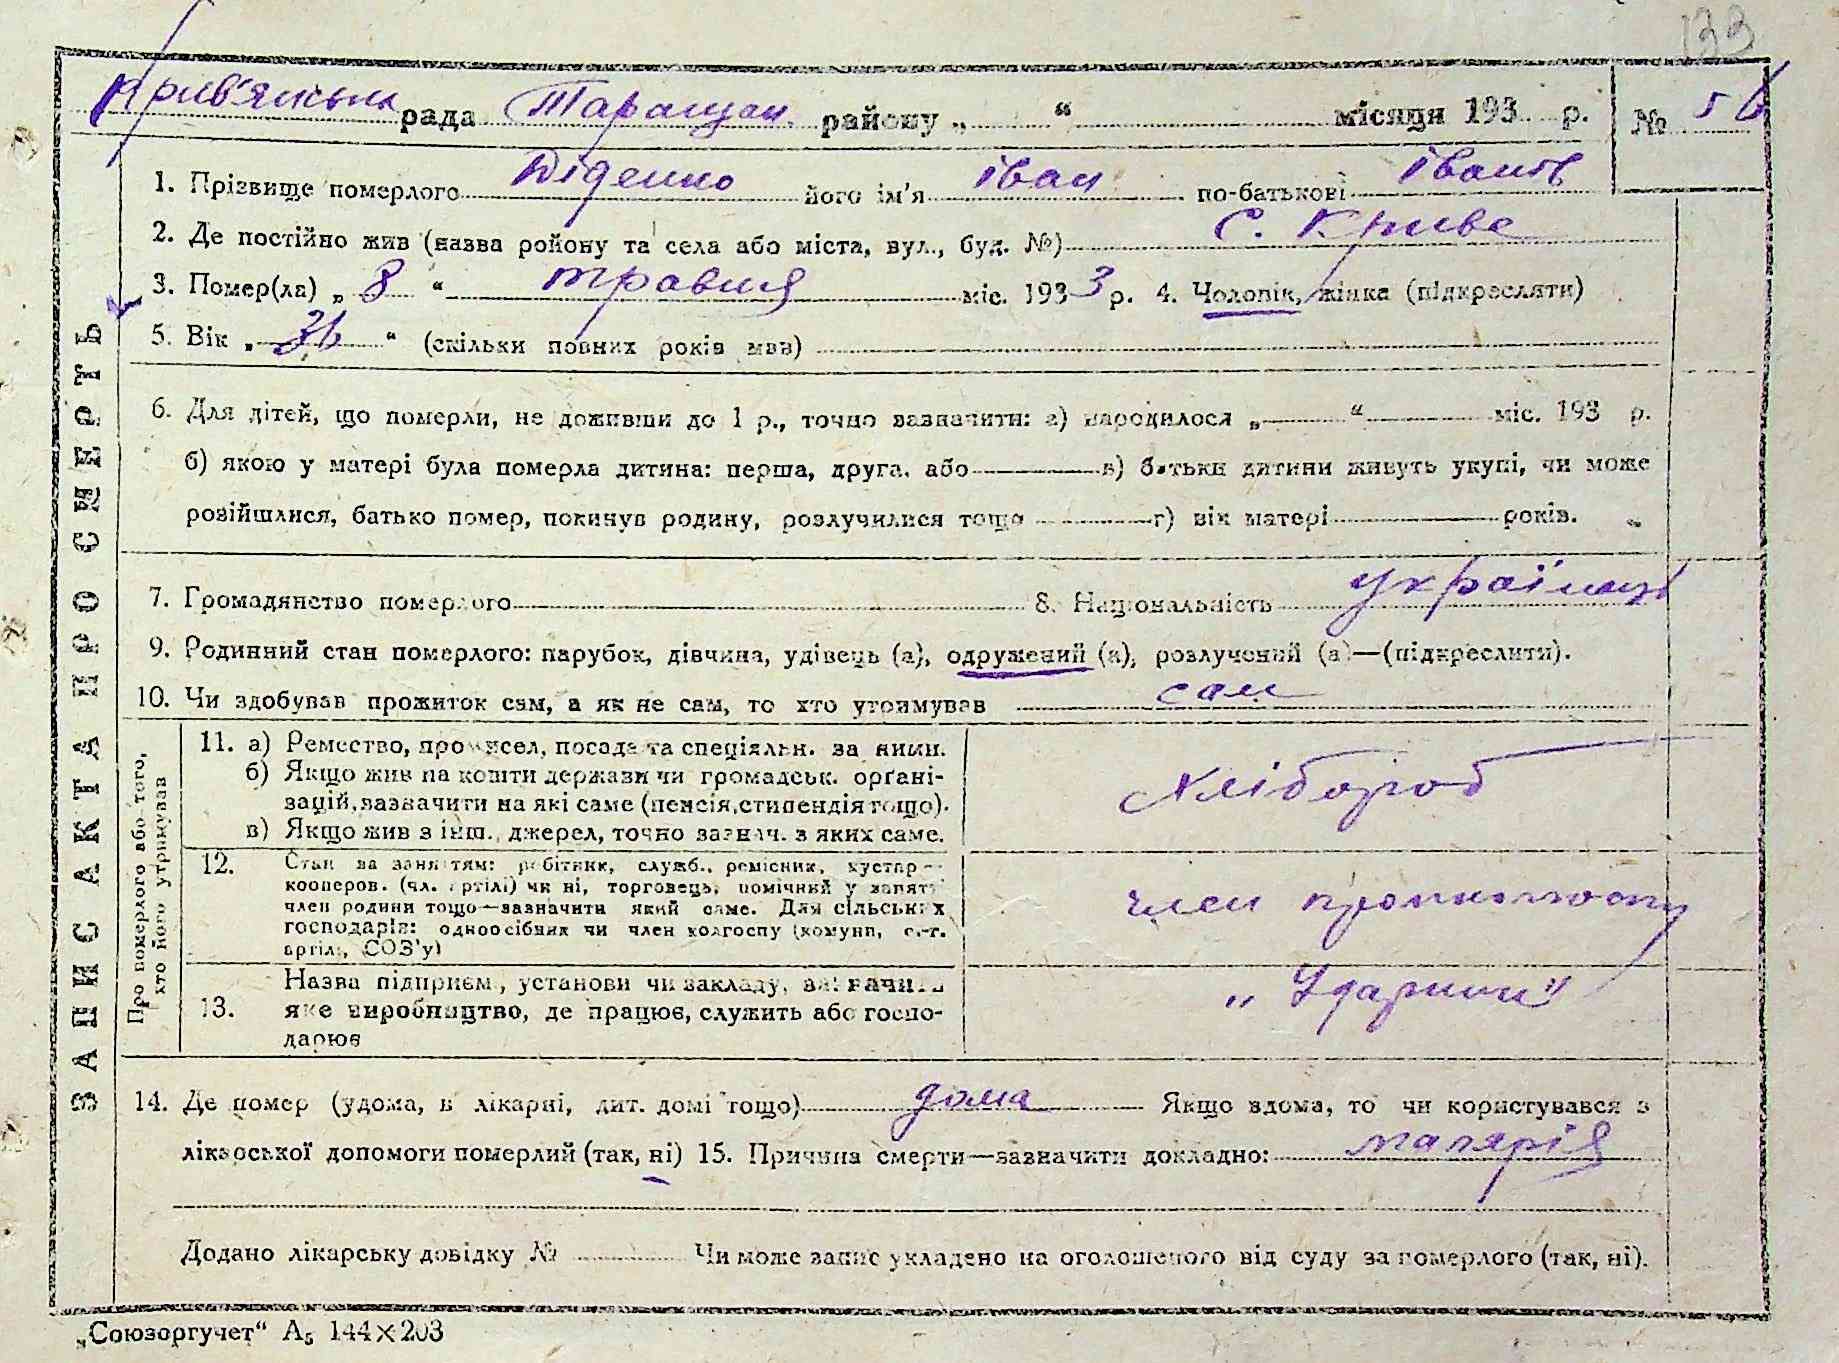 133
Крив'янська рада Таращан. району „ “ місяця 193 р. № 56
1. Прізвище померлого Діденко його ім'я Іван по-батькові Іванов
2. Де постійно жив (назва ройону та села або міста, вул., буд. №) с. Криве
3. Помер(ла) „ 8 “ травня міс. 1933 р. 4. Чоловік, жінка (підкресляти)
5. Вік „ 36 “ (скільки повних років мав)
6. Для дітей, що померли, не доживши до 1 р., точно зазначити: а) народилося „ “ міс. 193 р.
б) якою у матері була померла дитина: перша, друга, або в) батьки дитини живуть укупі, чи може
розійшлися, батько помер, покинув родину, розлучилися тощо г) вік матері років.
7. Громадянство померлого 8. Національність українець
9. Родинний стан померлого: парубок, дівчина, удівець (а), одружений (а), розлучений (а)—(підкреслити).
10. Чи здобував прожиток сам, а як не сам, то хто утримував сам
ЗАПИС АКТА ПРО СМЕРТЬ
Про померлого або того, хто його утримував
11. а) Ремество, промисел, посада та спеціяльн. за ними.
б) Якщо жив на кошти держави чи громадськ. орґані-
зацій, зазначити на які саме (пенсія, стипендія тощо).
в) Якщо жив з інш. джерел, точно зазнач. з яких саме.
Хлібороб
12. Стан за заняттям: робітник, служб., ремісник, кустар —
кооперов. (чл. артілі) чи ні, торговець, помічний у занятт
член родини тощо—зазначити який саме. Для сільських
господарів: одноосібник чи член колгоспу (комуни, с.-г.
артілі, СОЗ'у)
член
13. Назва підприєм., установи чи закладу, зазначить
яке виробництво, де працює, служить або госпо-
дарює
„Ударник“
14. Де помер (удома, в лікарні, дит. домі тощо) дома Якщо вдома, то чи користувався з
лікарської допомоги померлий (так, ні) 15. Причина смерти—зазначити докладно: малярія
Додано лікарську довідку № Чи може запис укладено на оголошеного від суду за померлого (так, ні).
„Союзоргучет“ А5 144×203